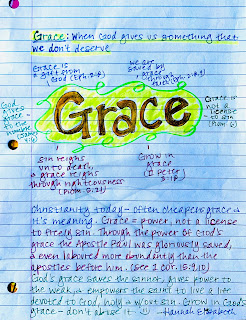 Grace: When God gives us something that
we don't deserve
Grace is
a gift from
God (Eph. 2:8)
we are
saved by
grace
through
faith (Eph. 2:8,9)
God
gives
grace
to the
humble
Grace is
not a
license
to sin
(Rom 6)
Grace
sin reigns
unto death,
grace reigns
through righteousness
(Rom. 5:21)
Grow in
grace
(2 Peter
3:18)
Christianity today - often cheapens grace &
it's meaning. Grace = power, not a license
to freely sin. Through the power of God's
grace the Apostle Paul was gloriously saved,
& even labored more abundantly than the
apostles before him. (See 1 Cor. 15:9,10)
God's grace saves the sinner, gives power to
the weak, & empowers the saint to live a life
devoted to God, holy & w/out sin. Grow in God's
grace - don't abuse it. ☺ - Hannah Elizabeth